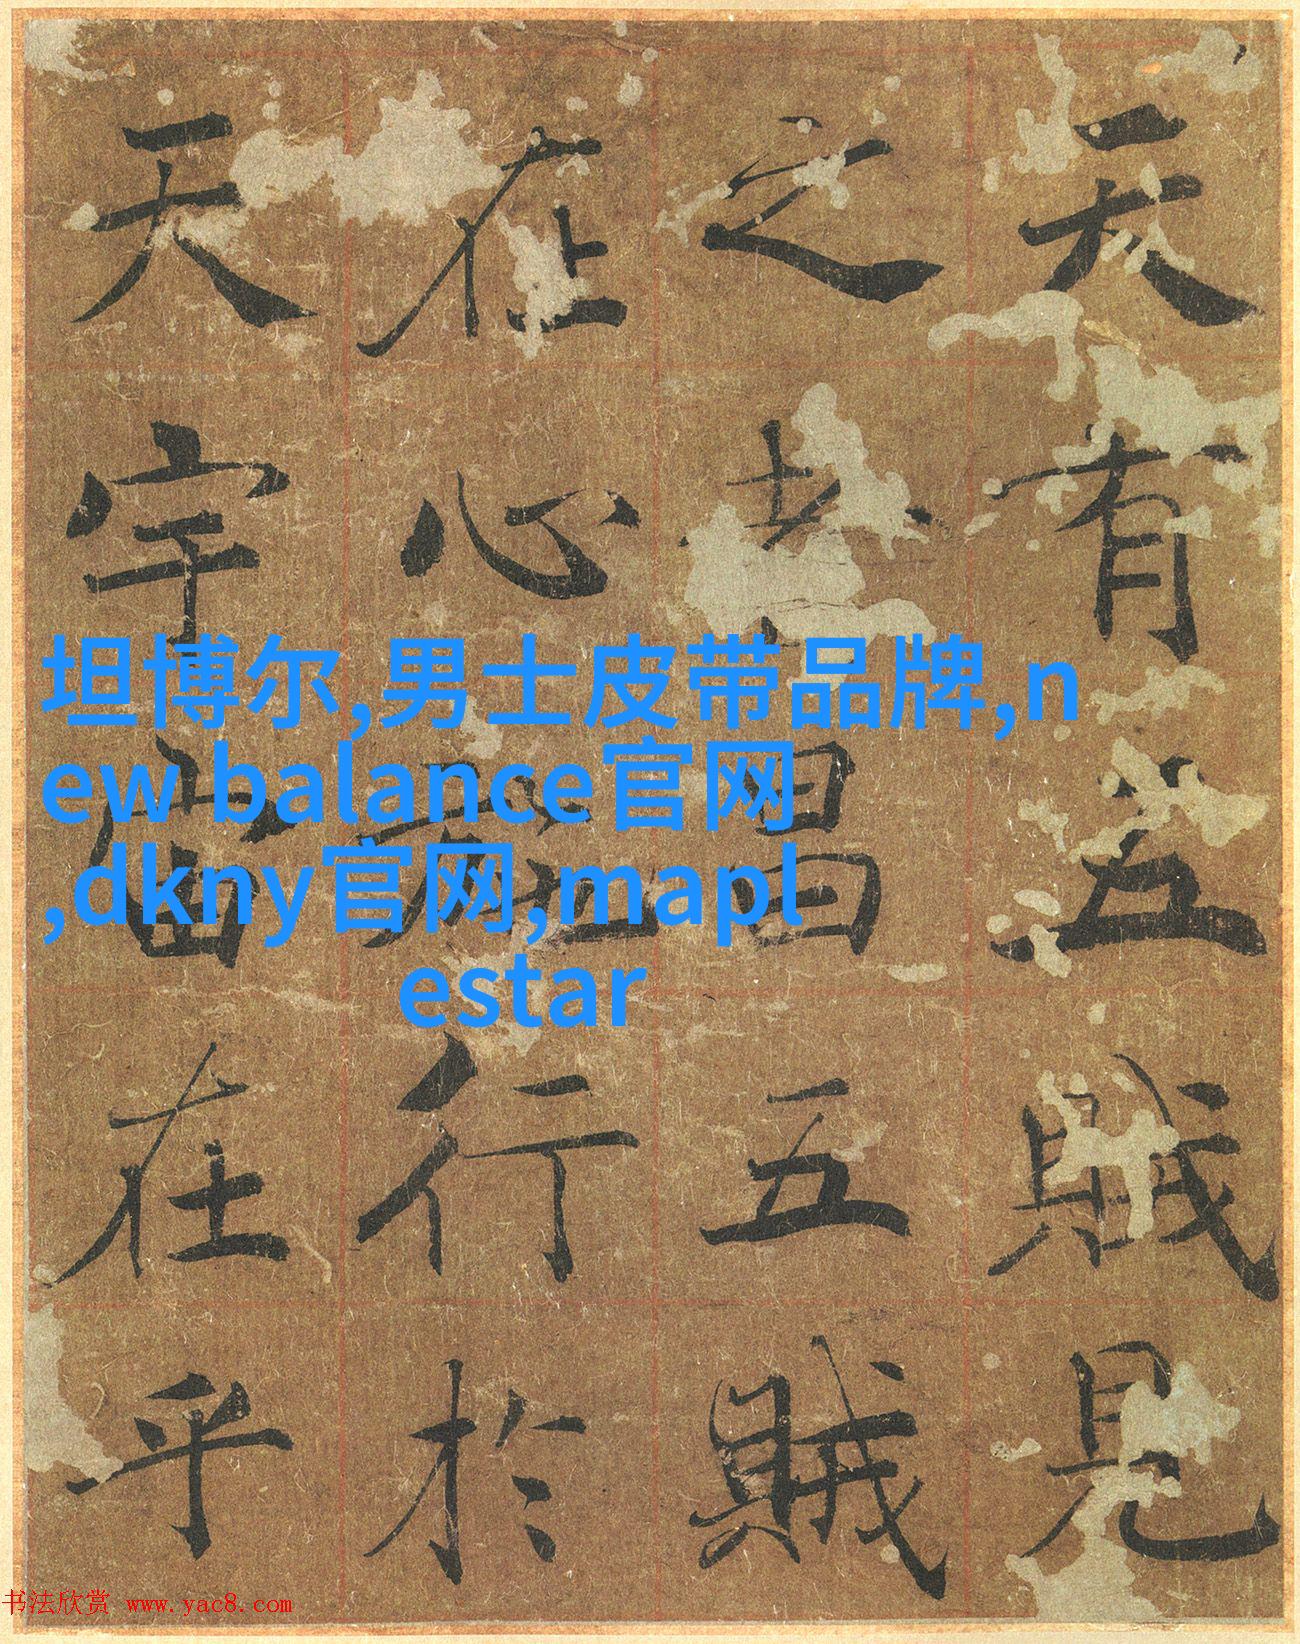 天有五賊見
之者昌五賊
在心施行於
天宇宙在乎
坦博尔,男士皮带品牌,n
ew balance官网
,dkny官网,mapl
estar
书法欣赏 www.yac8.com